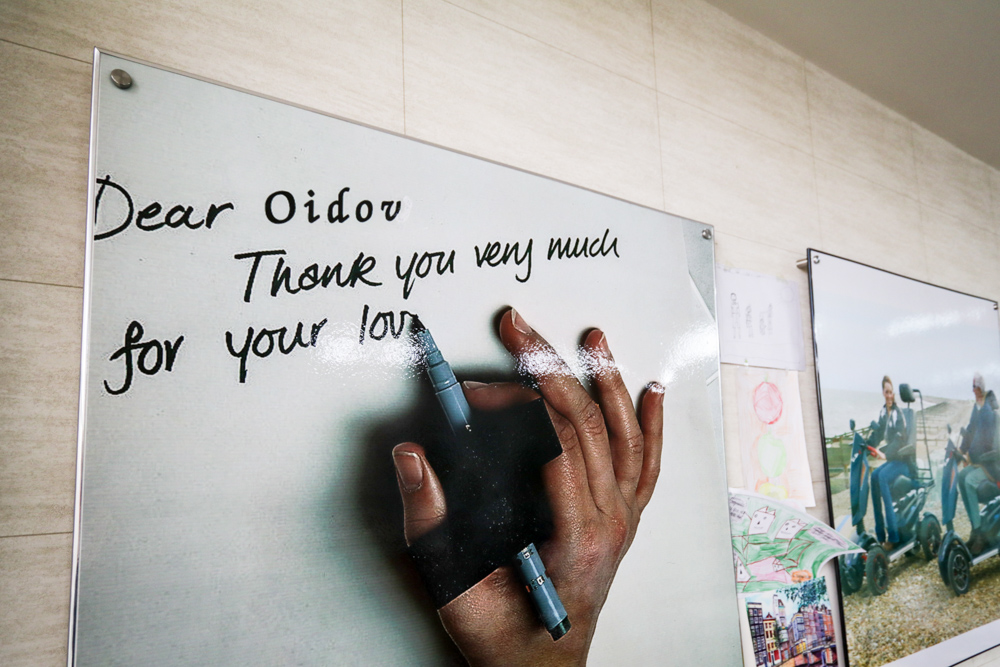 Dear Oidov
Thank you very much
for your lov